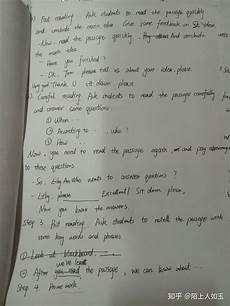 Fast reading. Ask students to read the passage quickly
and conclude the main idea. Give some feedback on Ss' idea.
- Now, read the passage quickly. and conclude
the main idea.
- Have you finished?
- OK, Tom please tell us about your idea, please.
Thank U. sit down please
2) Careful reading. Ask students to read the passage carefully
and answer some questions.
① When ...
② According to ... who?
③ How ...
Now, you need to read the passage again, and pay
to these questions.
- So, who wants to answer questions?
- Lily, please. Excellent! Sit down please,
Now you know the answers.
Step 3. Post reading. Ask students to retell the passage with
some key words and phrases.
① Look at blackboard,
② After we've learnt the passage, we can know about ...
Step 4 Homework
知乎 @陌上人如玉